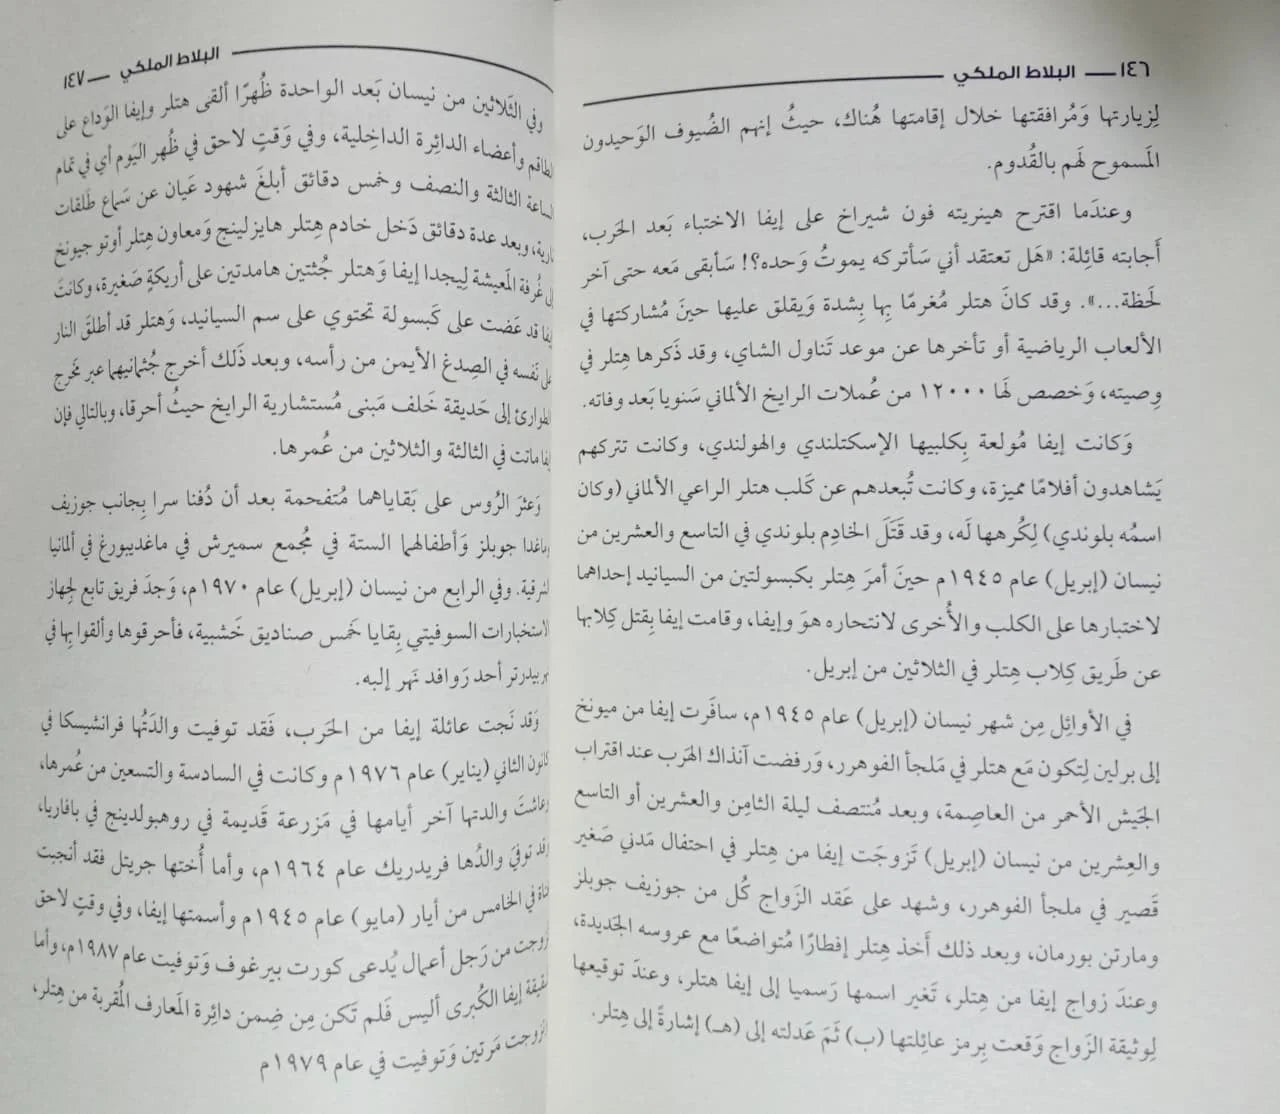 ١٤٦ — البلاط الملكي
لِزيارتها وَمُرافقتها خلال إقامتها هُناك، حيثُ إنهم الضُيوف الوَحيدون
المَسموح لهَم بالقُدوم.
وعندَما اقترح هينريته فون شيراخ على إيفا الاختباء بَعد الحَرب،
أَجابته قائِلة: «هَل تعتقد أني سَأتركه يموتُ وَحده؟! سَأبقى مَعه حتى آخر
لَحظة...». وقد كانَ هتلر مُغرمًا بِها بِشدة وَيقلق عليها حينَ مُشاركتها في
الألعاب الرياضية أو تأخرها عن موعد تَناول الشاي، وقد ذَكرها هِتلر في
وصيته، وَخصص لهَا ١٢٠٠٠ من عُملات الرايخ الألماني سَنويا بَعد وفاته.
وَكانت إيفا مُولعة بِكلبيها الإسكتلندي والهولندي، وكانت تتركهم
يَشاهدون أفلامًا مميزة، وكانت تُبعدهم عن كَلب هتلر الراعي الألماني (وكان
اسمُه بلوندي) لِكُرهها لَه، وقد قَتَلَ الخادِم بلوندي في التاسع والعشرين من
نيسان (إبريل) عام ١٩٤٥م حينَ أمرَ هِتلر بكبسولتين من السيانيد إحداهما
لاختبارها على الكلب والأُخرى لانتحاره هوَ وإيفا، وقامت إيفا بِقتل كِلابها
عن طَريق كِلاب هِتلر في الثلاثين من إبريل.
في الأوائِل مِن شهر نيسان (إبريل) عام ١٩٤٥م، سافَرت إيفا من ميونخ
إلى برلين لِتكون مَع هتلر في مَلجأ الفوهرر، وَرفضت آنذاك الهَرب عند اقتراب
الجَيش الأحمر من العاصِمة، وبعد مُنتصف ليلة الثامِن والعشرين أو التاسع
والعِشرين من نيسان (إبريل) تَزوجَت إيفا من هِتلر في احتفال مَدني صَغير
قَصير في ملجأ الفوهرر، وشهد على عَقد الزَواج كُل من جوزيف جوبلز
ومارتن بورمان، وبعد ذلك أَخذ هِتلر إفطارًا مُتواضعًا مع عروسه الجَديدة،
وعندَ زواج إيفا من هِتلر، تَغير اسمها رَسميا إلى إيفا هتلر، وعندَ توقيعها
لِوثيقة الزَواج وَقعت بِرمز عائِلتها (ب) ثمَ عَدلته إلى (هـ) إشارةً إلى هِتلر.
البلاط الملكي — ١٤٧
وفي الثَلاثين من نيسان بَعد الواحدة ظُهرًا ألقى هتلر وإيفا الوَداع على
الطاقم وأعضاء الدائِرة الداخِلية، وفي وَقتٍ لاحق في ظُهر اليَوم أي في تمَام
الساعة الثالثة والنصف وخمس دقائق أبلغَ شهود عَيان عن سَماع طَلقات
نارية، وبعد عدة دقائق دَخل خادم هِتلر هايزلينج وَمعاون هِتلر أوتو جيونخ
إلى غُرفة المَعيشة لِيجدا إيفا وَهتلر جُثتين هامدتين على أريكةٍ صَغيرة، وكانَت
إيفا قد عَضت على كَبسولة تحتوي على سم السيانيد، وَهتلر قد أطلقَ النار
على نَفسه في الصِدغ الأيمن من رأسه، وبعد ذَلك أخرج جُثمانيهما عبر مَخرج
الطوارئ إلى حَديقة خَلف مَبنى مُستشارية الرايخ حيثُ أحرقا، وبالتالي فإن
إيفا ماتت في الثالثة والثلاثين من عُمرها.
وَعثرَ الرُوس على بَقاياهما مُتفحمة بعد أن دُفنا سرا بِجانب جوزيف
وماغدا جوبلز وَأطفالهما الستة في مُجمع سميرش في ماغديبورغ في ألمانيا
الشرقية. وفي الرابع من نيسان (إبريل) عام ١٩٧٠م، وَجدَ فريق تابع لِجهاز
الاستخبارات السوفيتي بِقايا خَمس صناديق خَشبية، فأحرقوها وألقوا بِها في
نهر بيدرتر أحد رَوافد نَهر إلبه.
وَقد نَجت عائلة إيفا من الحَرب، فَقد توفيت والدَتُها فرانشيسكا في
كانون الثاني (يناير) عام ١٩٧٦م وكانت في السادسة والتسعين من عُمرها،
وعاشتَ والدتها آخر أيامها في مَزرعة قَديمة في روهبولدينج في بافاريا،
وقد توفيَ والدُها فريدريك عام ١٩٦٤م، وأما أُختها جريتل فقد أنجبت
فتاة في الخامس من أيار (مايو) عام ١٩٤٥م وأسمتها إيفا، وفي وقتٍ لاحق
تزوجت من رَجل أعمال يُدعى كورت بيرغوف وَتوفيت عام ١٩٨٧م، وأما
شقيقة إيفا الكُبرى أليس فَلم تَكن مِن ضِمن دائِرة المَعارف المُقربة من هِتلر،
تزوجت مَرتين وَتوفيت في عام ١٩٧٩م